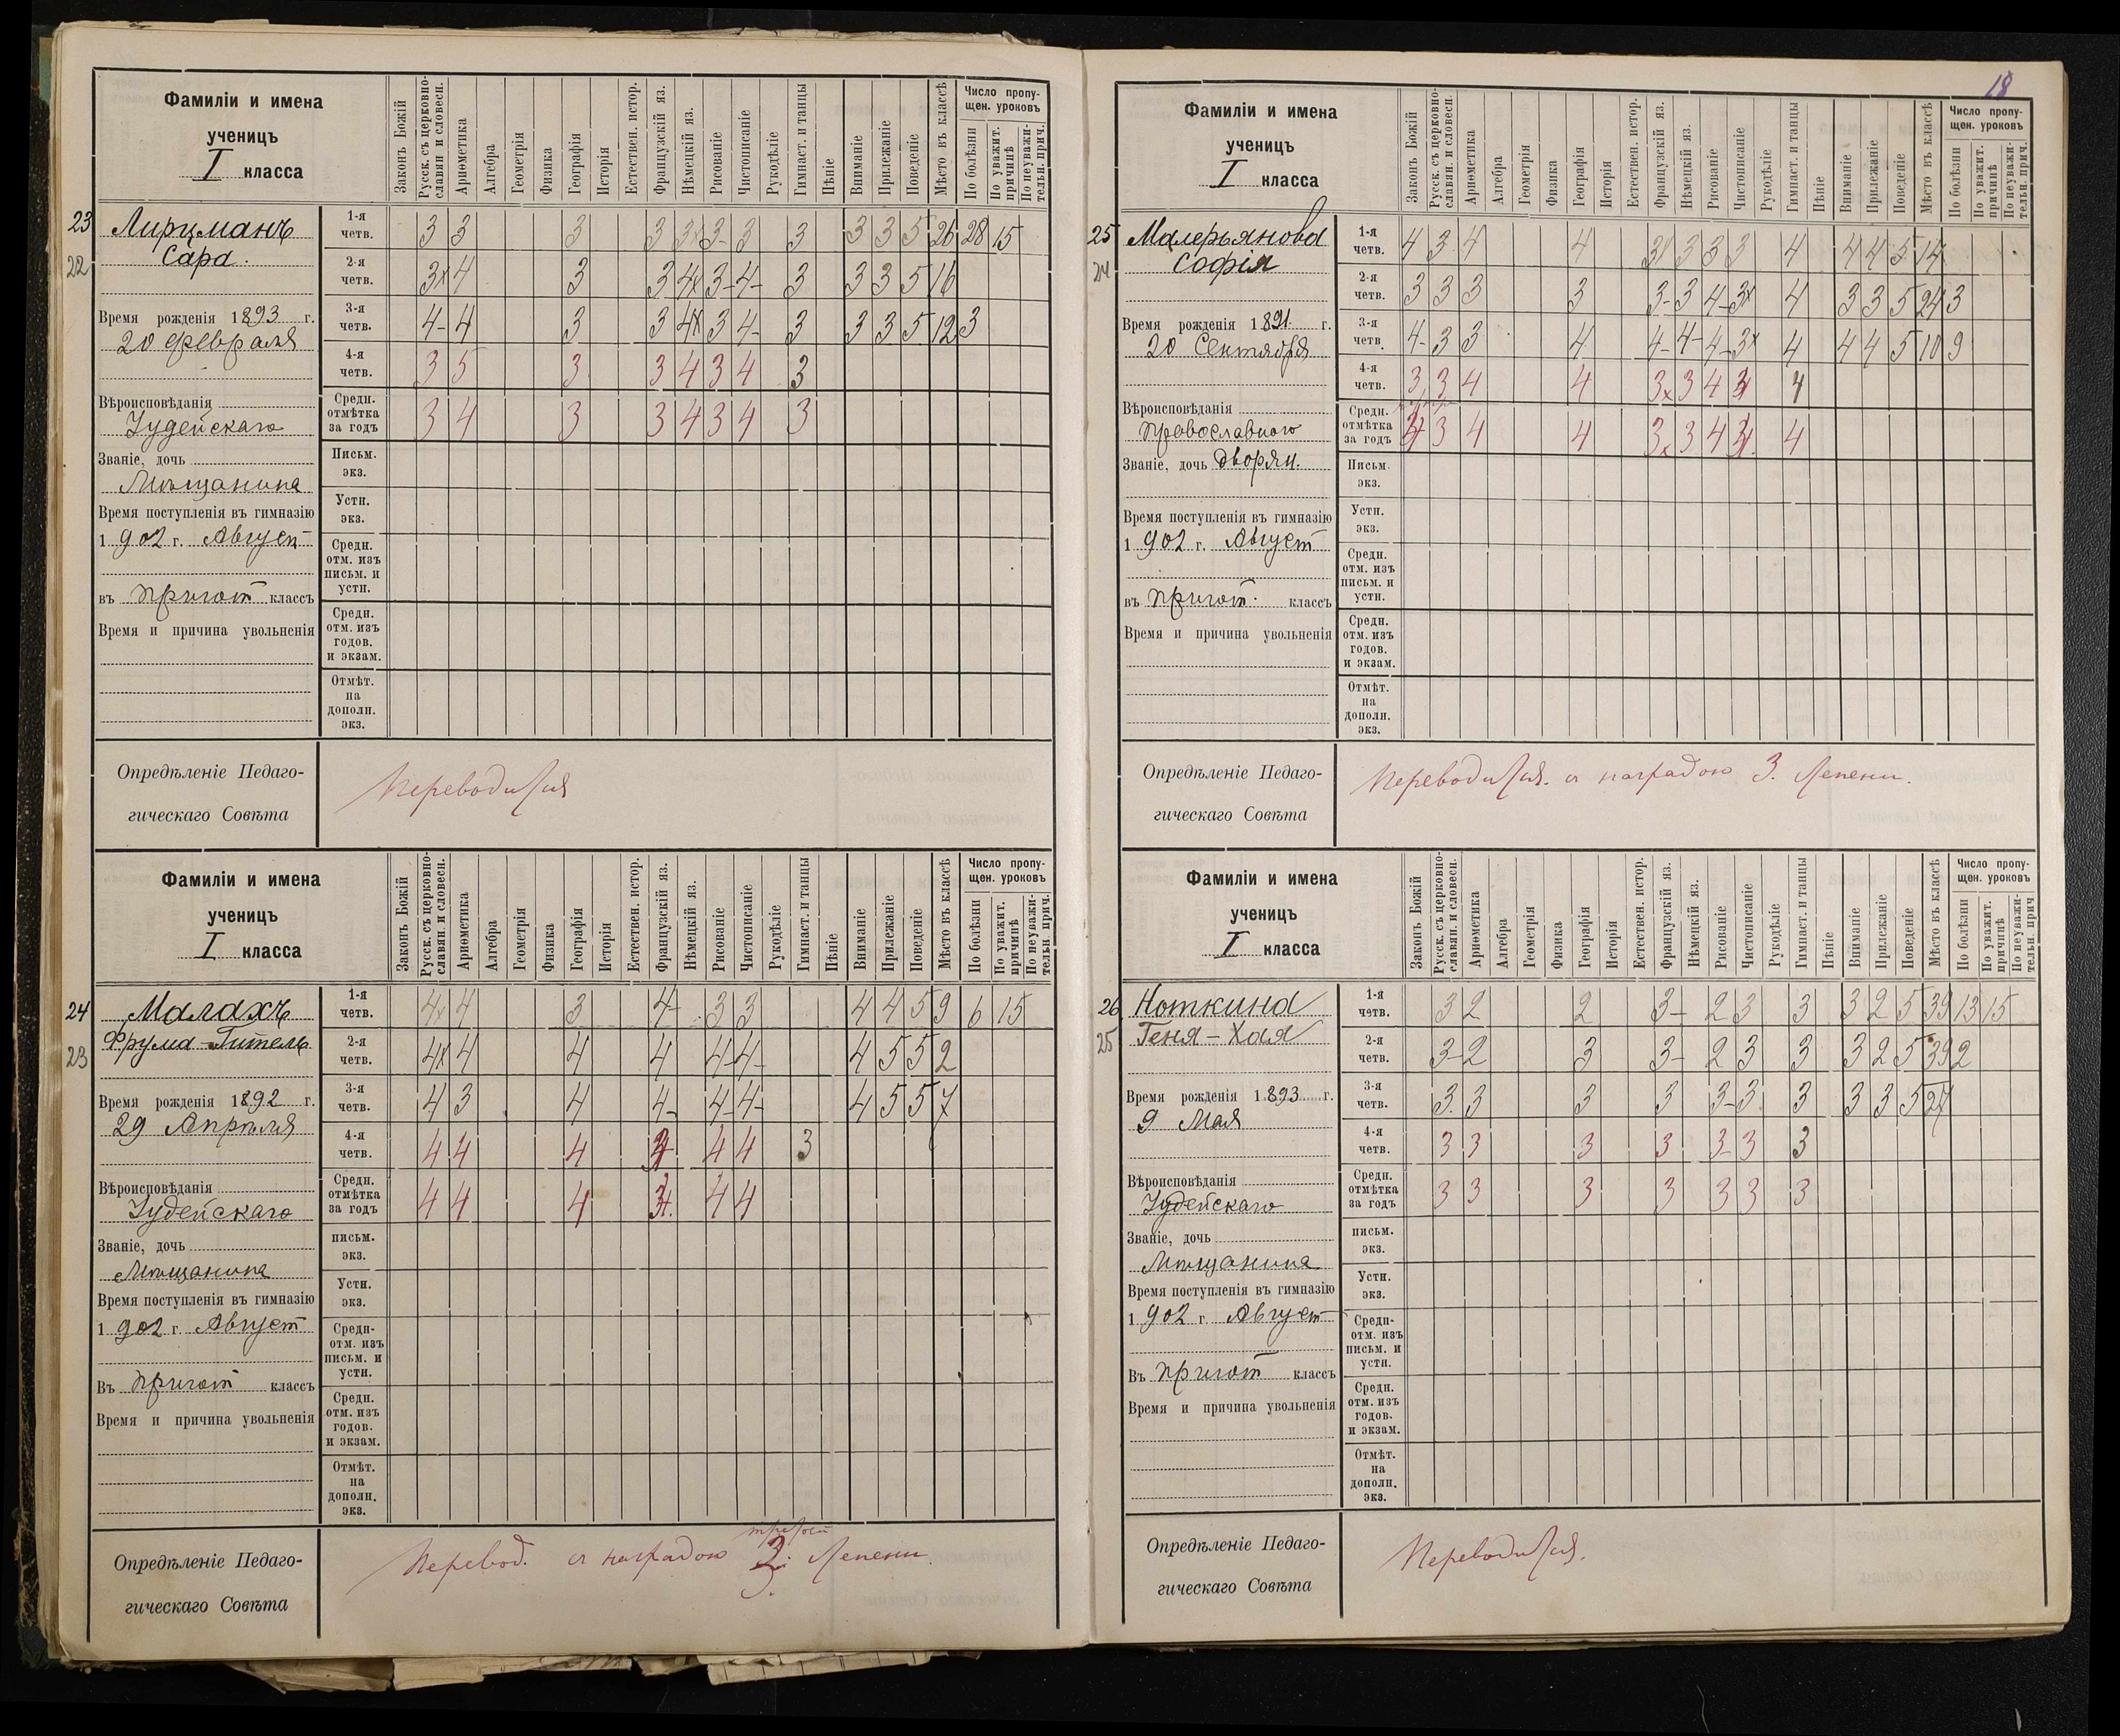 18
Фамиліи и имена
ученицъ
I класса
Законъ Божій
Русск. съ церковно-славян. и словесн.
Ариѳметика
Алгебра
Геометрія
Физика
Географія
Исторія
Естествен. истор.
Французскій яз.
Нѣмецкій яз.
Рисованіе
Чистописаніе
Рукодѣліе
Гимнаст. и танцы
Пѣніе
Вниманіе
Прилежаніе
Поведеніе
Мѣсто въ классѣ
Число пропущен. уроковъ
По болѣзни
По уважит. причинѣ
По неуважительн. прич.
23
22
Лирцманъ
Сара.
Время рожденія 1893 г.
20 Февраля
Вѣроисповѣданія
Іудейскаго
Званіе, дочь
Мѣщанина
Время поступленія въ гимназію
1902 г. Август
въ Пригот классъ
Время и причина увольненія
1-я четв. 3 3 3 3 3x 3- 3 3 3 3 5 26 28 15
2-я четв. 3x 4 3 3 4x 3- 4- 3 3 3 5 16
3-я четв. 4- 4 3 3 4x 3 4- 3 3 3 5 12 3
4-я четв. 3 5 3 3 4 3 4 3
Средн. отмѣтка за годъ 3 4 3 3 4 3 4 3
Письм. экз.
Устн. экз.
Средн. отм. изъ письм. и устн.
Средн. отм. изъ годов. и экзам.
Отмѣт. на дополн. экз.
Опредѣленіе Педаго-
гическаго Совѣта
Переводится
Фамиліи и имена
ученицъ
I класса
Законъ Божій
Русск. съ церковно-славян. и словесн.
Ариѳметика
Алгебра
Геометрія
Физика
Географія
Исторія
Естествен. истор.
Французскій яз.
Нѣмецкій яз.
Рисованіе
Чистописаніе
Рукодѣліе
Гимнаст. и танцы
Пѣніе
Вниманіе
Прилежаніе
Поведеніе
Мѣсто въ классѣ
Число пропущен. уроковъ
По болѣзни
По уважит. причинѣ
По неуважительн. прич.
24
23
Малахъ
Фрума-Гитель
Время рожденія 1892 г.
29 Апрѣля
Вѣроисповѣданія
Іудейскаго
Званіе, дочь
Мѣщанина
Время поступленія въ гимназію
1902 г Август
Въ Пригот классъ
Время и причина увольненія
1-я четв. 4x 4 3 4- 3 3 4 4 5 9 6 15
2-я четв. 4x 4 4 4 4- 4- 4 5 5 2
3-я четв. 4 3 4 4- 4- 4- 4 5 5 7
4-я четв. 4 4 4 4 4 3
Средн. отмѣтка за годъ 4 4 4 4 4
письм. экз.
Устн. экз.
Средн- отм. изъ письм. и устн.
Средн. отм. изъ годов. и экзам.
Отмѣт. на дополн. экз.
Опредѣленіе Педаго-
гическаго Совѣта
третьей
Перевод. съ наградою 3. степени.
Фамиліи и имена
ученицъ
I класса
Законъ Божій
Русск. съ церковно-славян. и словесн.
Ариѳметика
Алгебра
Геометрія
Физика
Географія
Исторія
Естествен. истор.
Французскій яз.
Нѣмецкій яз.
Рисованіе
Чистописаніе
Рукодѣліе
Гимнаст. и танцы
Пѣніе
Вниманіе
Прилежаніе
Поведеніе
Мѣсто въ классѣ
Число пропущен. уроковъ
По болѣзни
По уважит. причинѣ
По неуважительн. прич.
25
24
Малерьянова
Софія
Время рожденія 1891 г.
20 Сентября
Вѣроисповѣданія
Православнаго
Званіе, дочь дворян.
Время поступленія въ гимназію
1902 г. Август
въ Пригот. классъ
Время и причина увольненія
1-я четв. 4 3 4 4 3 3 3 3 4 4 4 5 14
2-я четв. 3 3 3 3 3- 3 4- 3x 4 3 3 5 24 3
3-я четв. 4- 3 3 4 4- 4- 4- 3x 4 4 4 5 10 9
4-я четв. 3 3 4 4 3x 3 4 4
Средн. отмѣтка за годъ 3 4 4 3x 3 4 4
Письм. экз.
Устн. экз.
Средн. отм. изъ письм. и устн.
Средн. отм. изъ годов. и экзам.
Отмѣт. на дополн. экз.
Опредѣленіе Педаго-
гическаго Совѣта
Переводится. съ наградою 3. степени.
Фамиліи и имена
ученицъ
I класса
Законъ Божій
Русск. съ церковно-славян. и словесн.
Ариѳметика
Алгебра
Геометрія
Физика
Географія
Исторія
Естествен. истор.
Французскій яз.
Нѣмецкій яз.
Рисованіе
Чистописаніе
Рукодѣліе
Гимнаст. и танцы
Пѣніе
Вниманіе
Прилежаніе
Поведеніе
Мѣсто въ классѣ
Число пропущен. уроковъ
По болѣзни
По уважит. причинѣ
По неуважительн. прич
26
25
Ноткина
Геня-Хая
Время рожденія 1893 г.
9 Мая
Вѣроисповѣданія
Іудейскаго
Званіе, дочь
Мѣщанина
Время поступленія въ гимназію
1902 г Август
Въ Пригот классъ
Время и причина увольненія
1-я четв. 3 2 2 3- 2 3 3 3 2 5 39 13 15
2-я четв. 3- 2 3 3- 2 3 3 3 2 5 39 2
3-я четв. 3 3 3 3 3- 3 3 3 3 5 27
4-я четв. 3 3 3 3 3- 3 3
Средн. отмѣтка за годъ 3 3 3 3 3 3 3
письм. экз.
Устн. экз.
Средн- отм. изъ письм. и устн.
Средн. отм. изъ годов. и экзам.
Отмѣт. на дополн. экз.
Опредѣленіе Педаго-
гическаго Совѣта
Переводится.